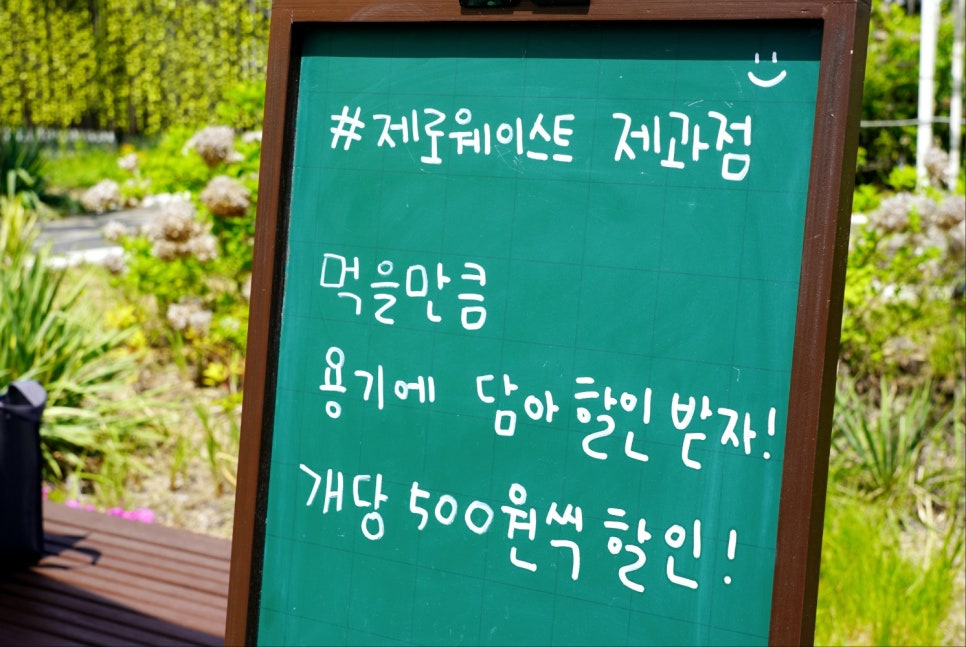 #제로웨이스트 제과점
먹을만큼
용기에 담아 할인 받자!
개당 500원씩 할인!